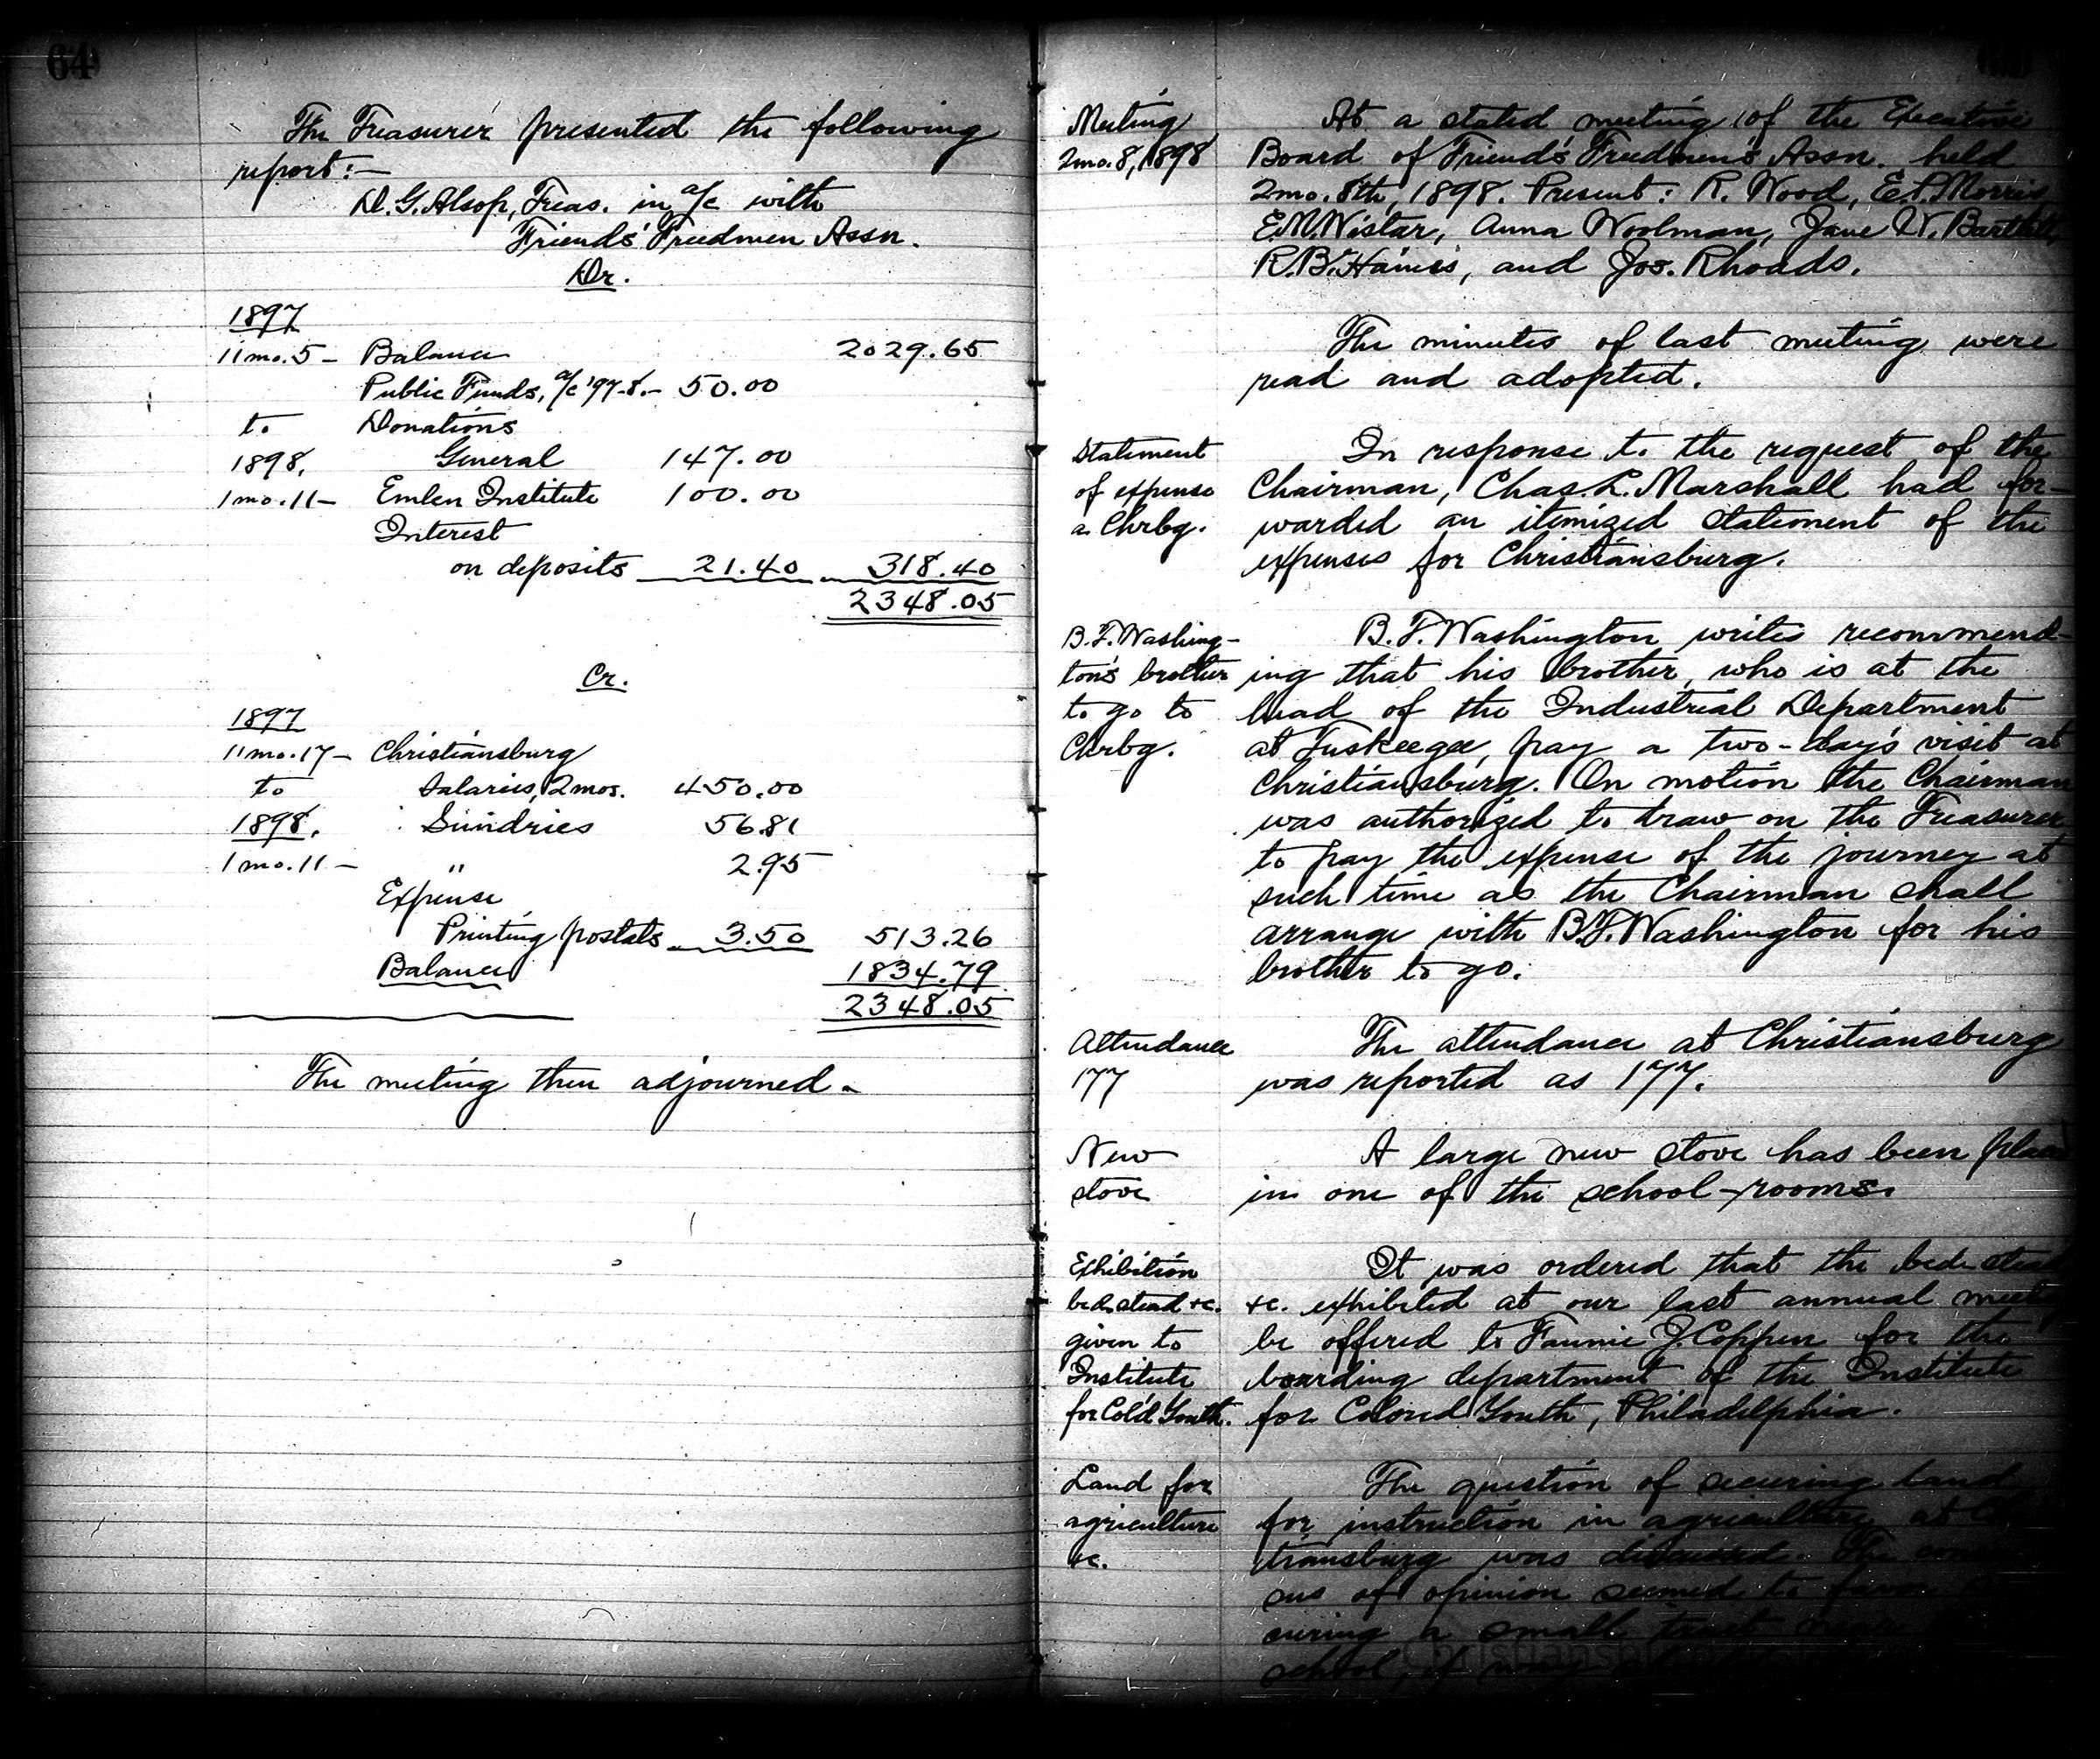 64
The Treasurer presented the following
report:—
D. G. Alsop, Treas. in a/c with
Friends' Freedmen Assn.
Dr.
1897
11mo.5 – Balance 2029.65
Public Funds, a/c '97-8.– 50.00
to Donations
1898. General 147.00
1mo.11– Emlen Institute 100.00
Interest
on deposits 21.40 318.40
2348.05
Cr.
1897
11mo.17– Christiansburg
to Salaries, 2mos. 450.00
1898. Sundries 56.81
1mo.11– " 2.95
Expense
Printing postals 3.50 513.26
Balance 1834.79
2348.05
The meeting then adjourned.
Meeting
2mo.8, 1898
At a stated meeting of the Executive
Board of Friend's Freedmen's Assn. held
2mo. 8th, 1898. Present: R. Wood, E.P. Morris,
E.M. Wistar, Anna Woolman, Jane W. Bartlett,
R.B. Haines, and Jos. Rhoads.
The minutes of last meeting were
read and adopted.
Statement
of expense
a. Chrbg.
In response to the request of the
Chairman, Chas. L. Marshall had for-
warded an itemized statement of the
expenses for Christiansburg.
B.T. Washing-
ton's brother
to go to
Chrbg.
B.T. Washington writes recommend-
ing that his brother, who is at the
head of the Industrial Department
at Tuskeegee, pay a two-day's visit at
Christiansburg. On motion the Chairman
was authorized to draw on the Treasurer
to pay the expense of the journey at
such time as the Chairman shall
arrange with B.T. Washington for his
brother to go.
Attendance
177
The attendance at Christiansburg
was reported as 177.
New
stove
A large new stove has been placed
in one of the school-rooms.
Exhibition
bedstead &c.
given to
Institute
for Col'd Youth.
It was ordered that the bedstead
&c. exhibited at our last annual meeting
be offered to Fannie J. Coppen for the
boarding department of the Institute
for Colored Youth, Philadelphia.
Land for
agriculture
&c.
The question of securing land
for instruction in agriculture at
tiansburg was discussed. The
sus of opinion seemed to favor
curing a small tract near
school, if